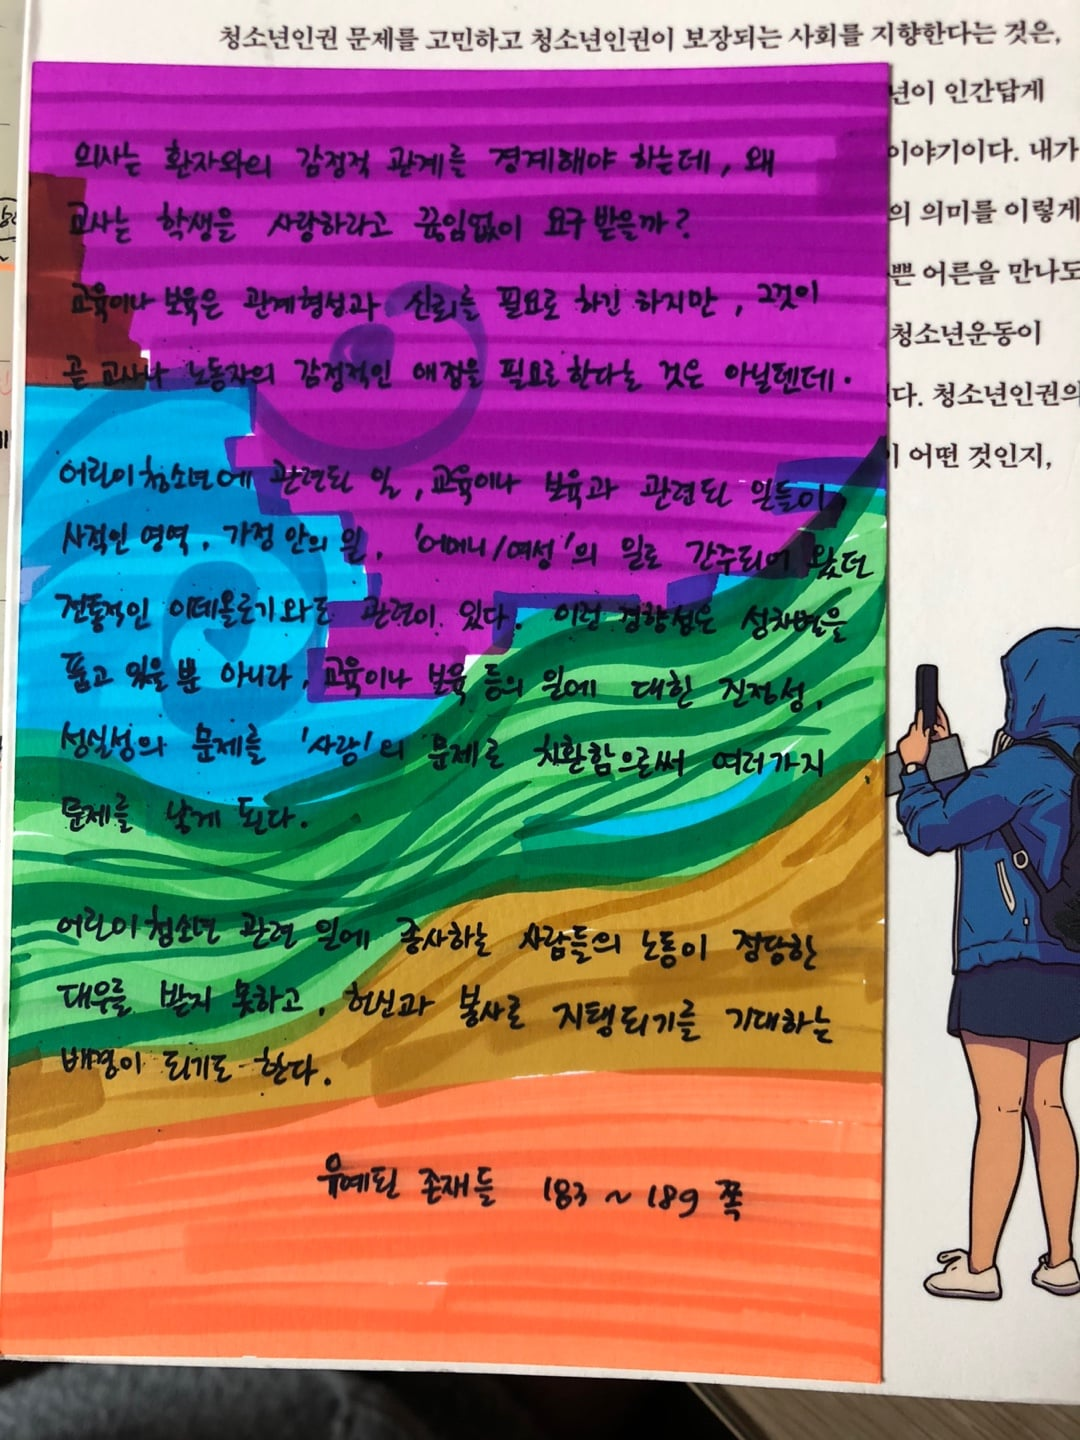 청소년인권 문제를 고민하고 청소년인권이 보장되는 사회를 지향한다는 것은,
년이 인간답게
이야기이다. 내가
의 의미를 이렇게
쁜 어른을 만나도
청소년운동이
다. 청소년인권의
이 어떤 것인지,
의사는 환자와의 감정적 관계를 경계해야 하는데, 왜
교사는 학생을 사랑하라고 끊임없이 요구 받을까?
교육이나 보육은 관계형성과 신뢰를 필요로 하긴 하지만, 그것이
곧 교사나 노동자의 감정적인 애정을 필요로 한다는 것은 아닐텐데.
어린이 청소년에 관련된 일, 교육이나 보육과 관련된 일들이
사적인 영역, 가정 안의 일, '어머니/여성'의 일로 간주되어 왔던
전통적인 이데올로기와도 관련이 있다. 이런 경향성은 성차별을
품고 있을 뿐 아니라, 교육이나 보육 등의 일에 대한 진정성,
성실성의 문제를 '사랑'의 문제로 치환함으로써 여러가지
문제를 낳게 된다.
어린이 청소년 관련 일에 종사하는 사람들의 노동이 정당한
대우를 받지 못하고, 헌신과 봉사로 지탱되기를 기대하는
배경이 되기도 한다.
유예된 존재들 183 ~ 189 쪽